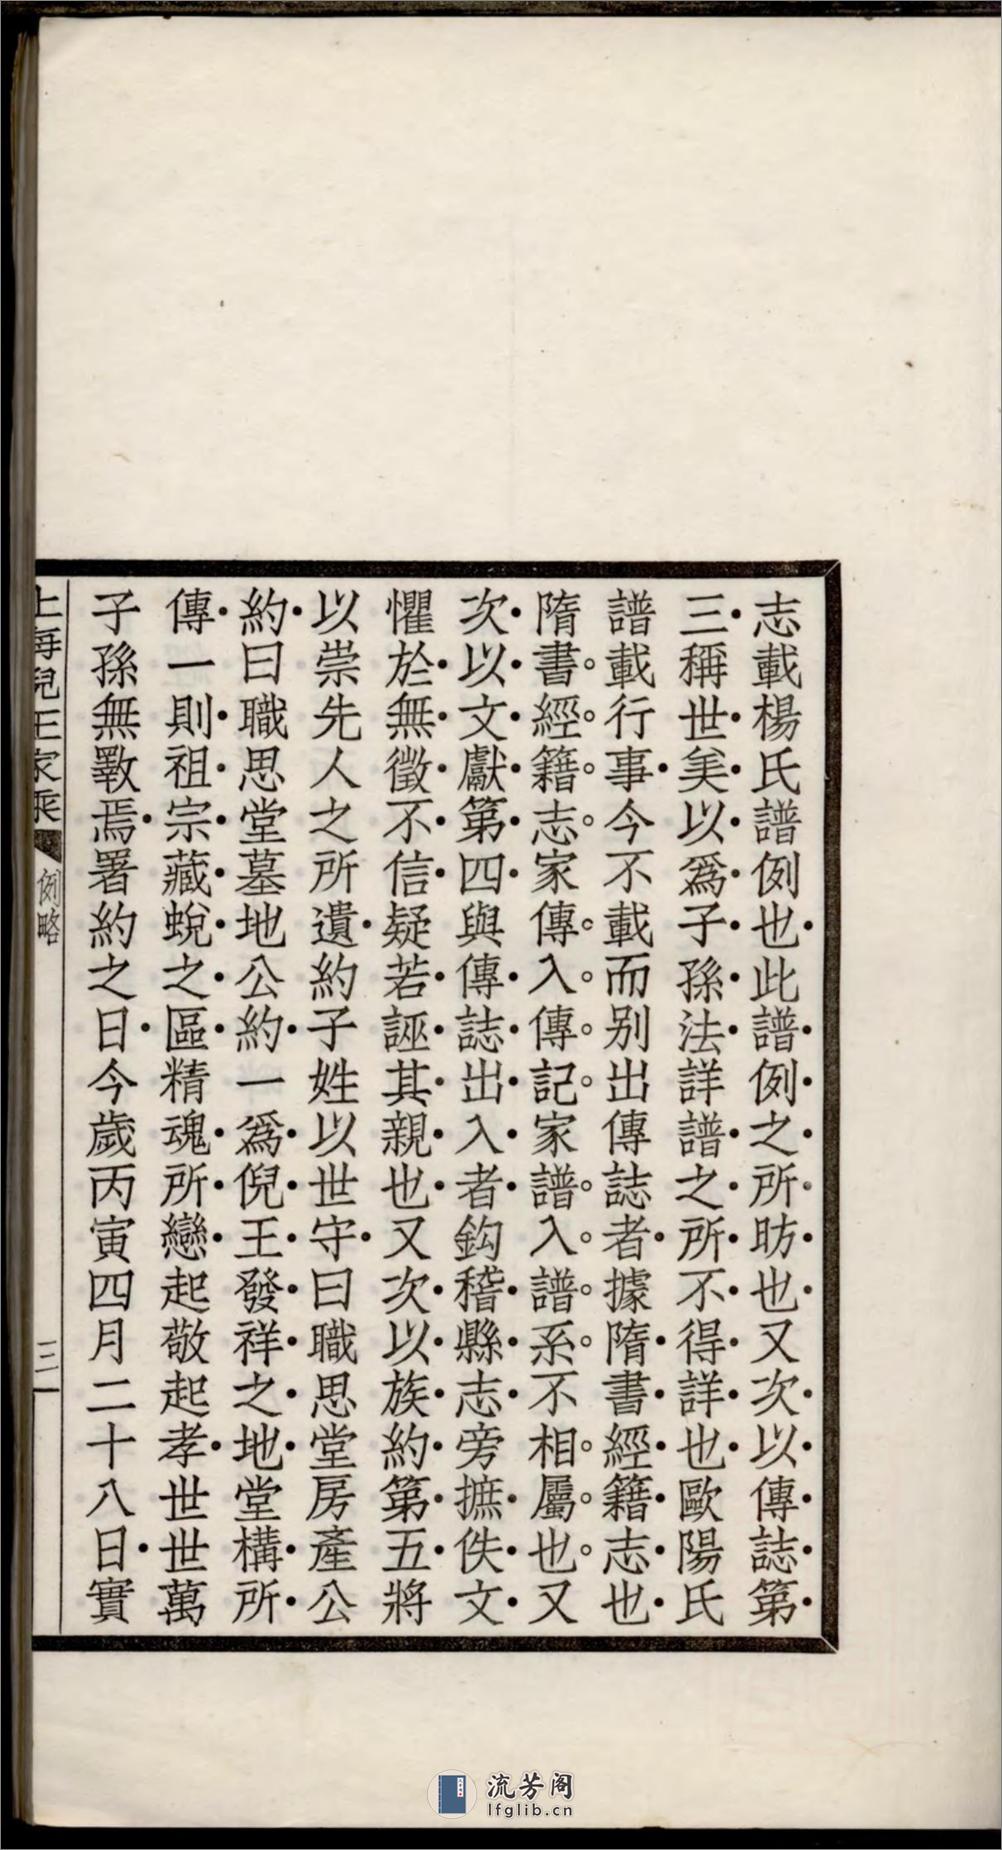 志載楊氏譜例也此譜例之所昉也又次以傳誌第
三稱世矣以爲子孫法詳譜之所不得詳也歐陽氏
譜載行事今不載而别出傳誌者據隋書經籍志也
隋書經籍志家傳入傳記家譜入譜系不相屬也又
次以文獻第四與傳誌出入者鈎稽縣志旁摭佚文
懼於無徵不信疑若誣其親也又次以族約第五將
以崇先人之所遺約子姓以世守曰職思堂房產公
約曰職思堂墓地公約一爲倪王發祥之地堂構所
傳一則祖宗藏蛻之區精魂所戀起敬起孝世世萬
子孫無斁焉署約之日今歲丙寅四月二十八日實
上海倪王家乘
例略
三
流芳阁
lfglib.cn